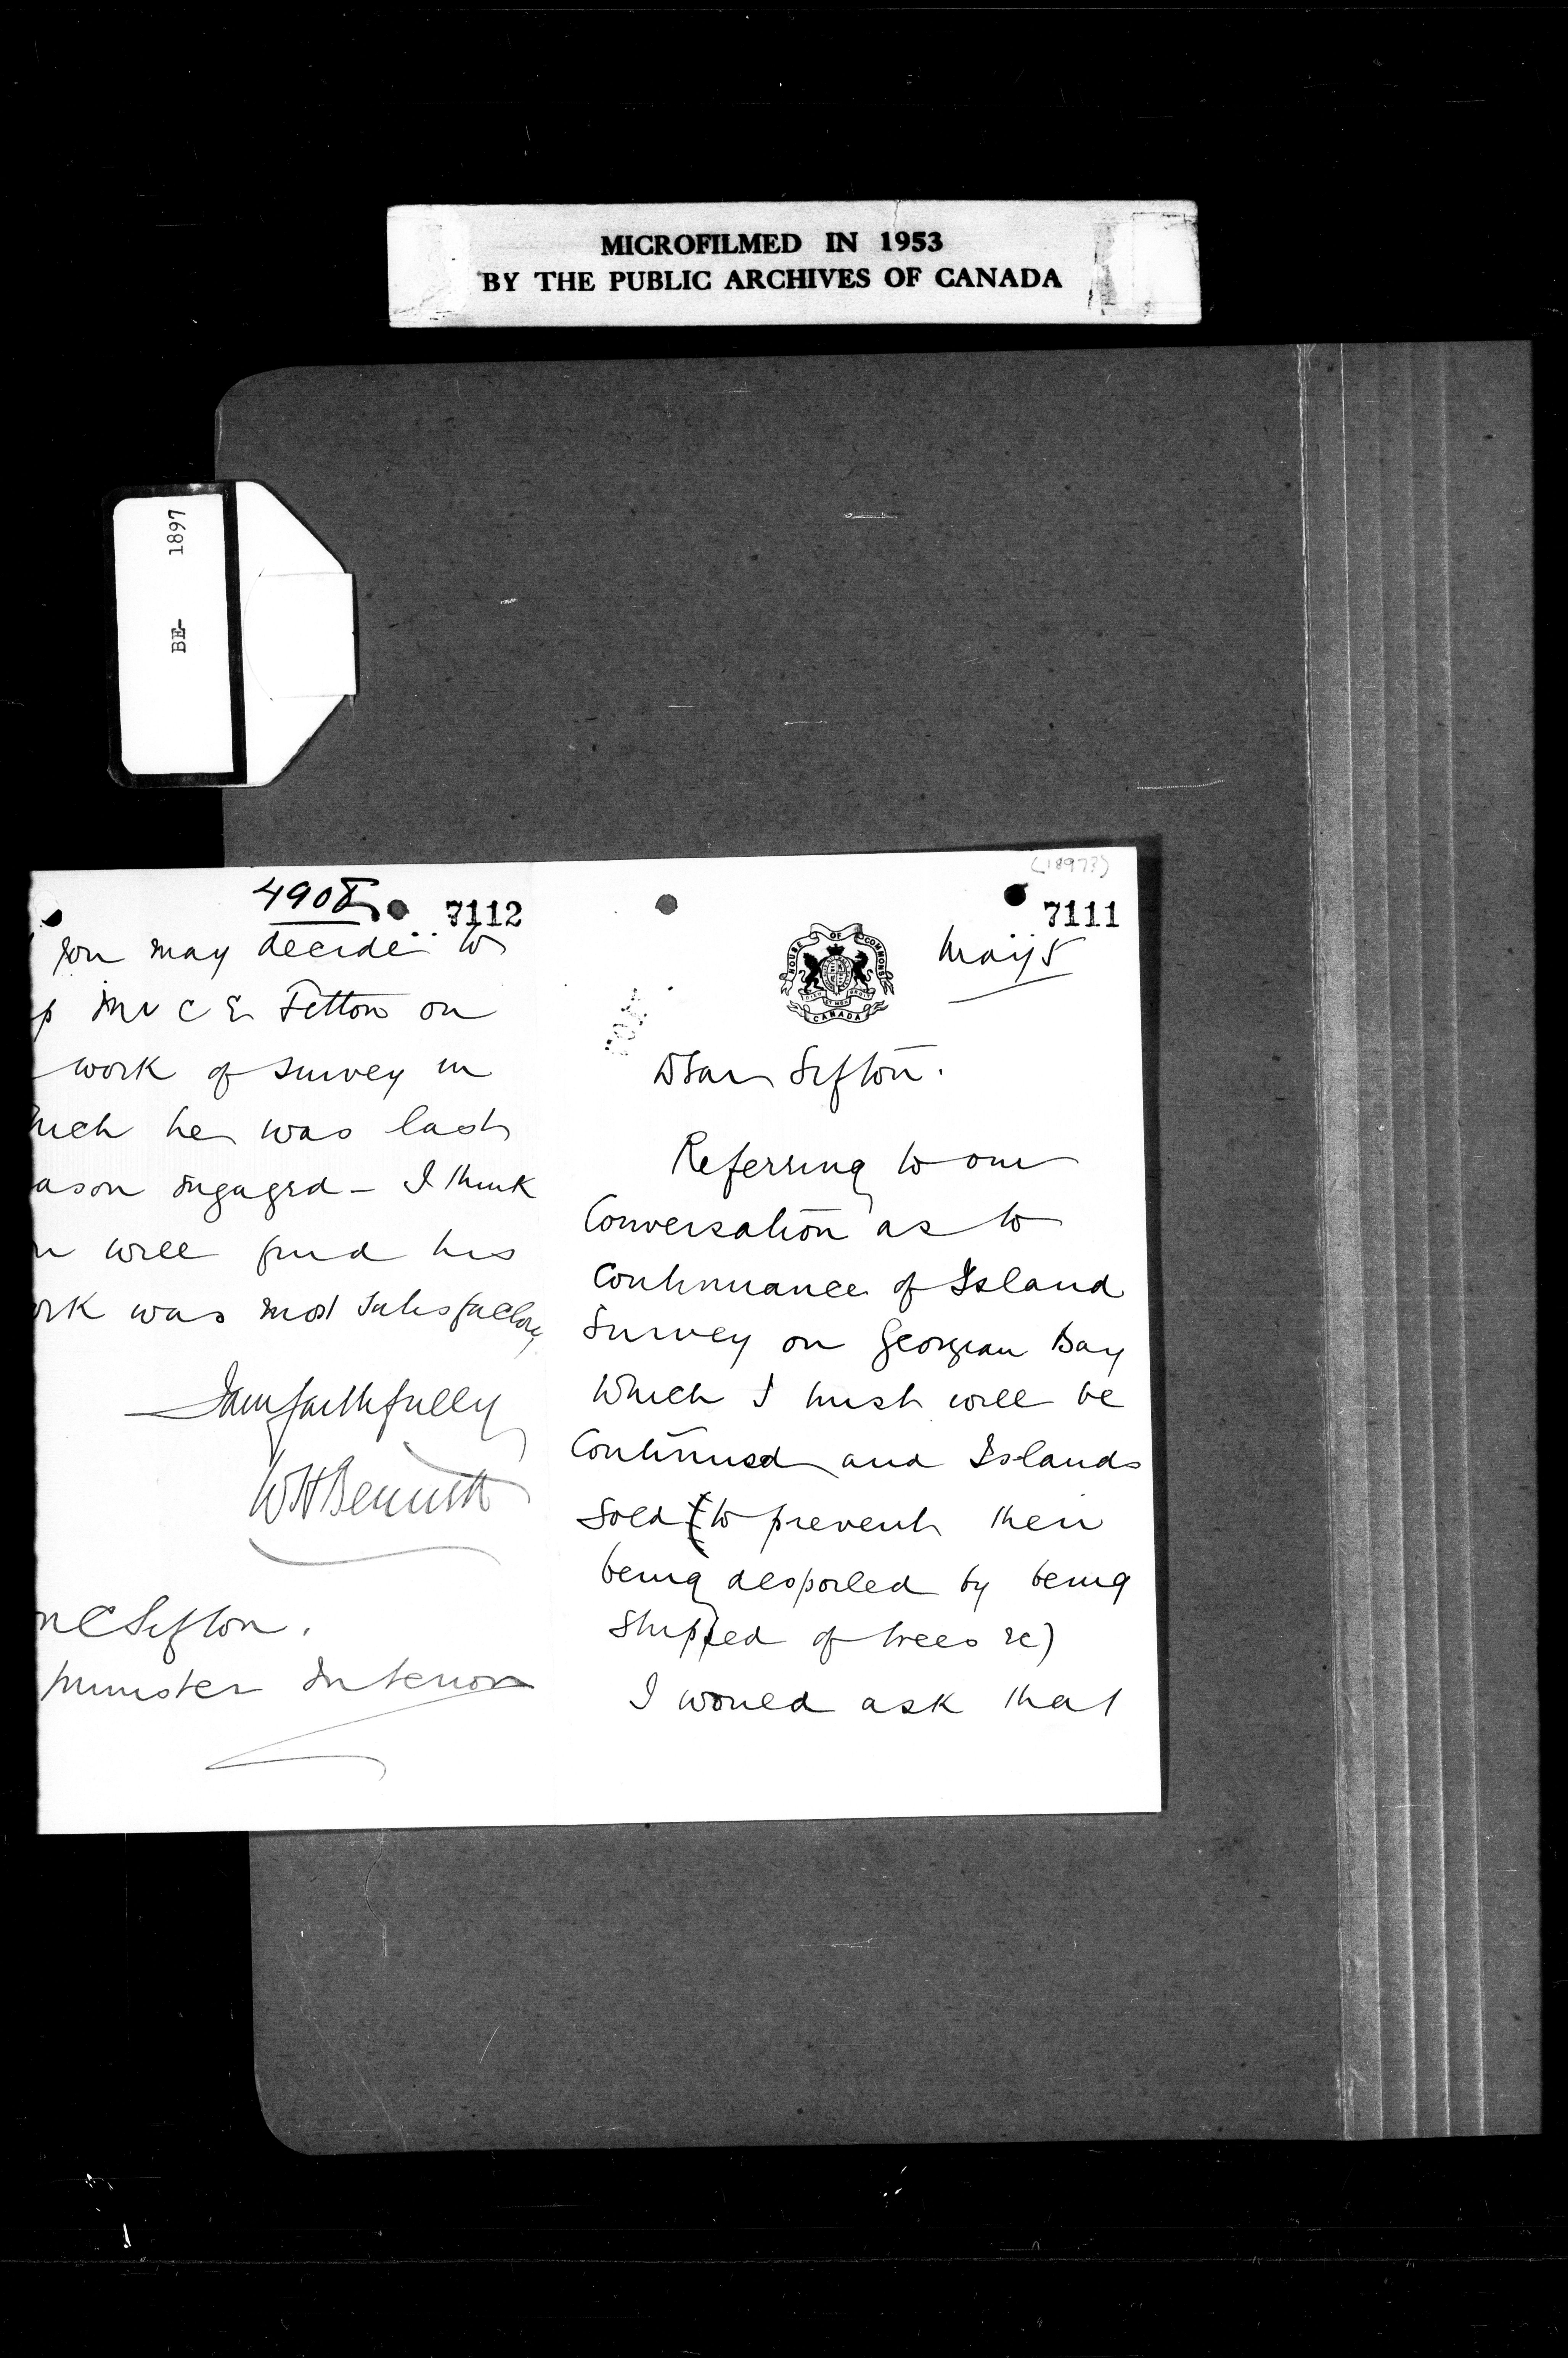 MICROFILMED IN 1953
BY THE PUBLIC ARCHIVES OF CANADA
BE- 1897
(1897?)
7111
HOUSE OF COMMONS
CANADA
May 5
Dear Sifton.
Referring to our
Conversation as to
Continuance of Island
Survey on Georgian Bay
which I trust will be
Continued and Islands
Sold (to prevent their
being despoiled by being
Stripped of trees &c)
I would ask that
4908
7112
you may decide to
p Mr C E Fitton on
work of survey in
hich he was last
ason engaged - I think
u will find his
ork was most satisfactory
I am faithfully
W H Bennett
n C Sifton.
Minister Interior